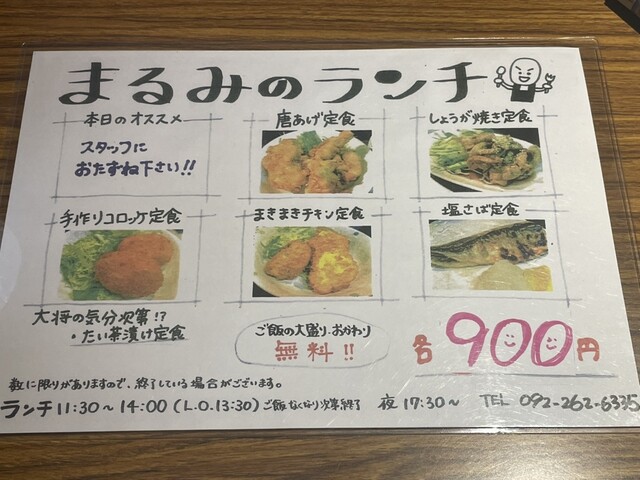 まるみのランチ
本日のオススメ
スタッフに
おたずね下さい!!
唐あげ定食
しょうが焼き定食
手作りコロッケ定食
まきまきチキン定食
塩さば定食
大将の気分次第!?
・たい茶漬け定食
ご飯の大盛り、おかわり
無料!!
各900円
数に限りがありますので、終了している場合がございます。
ランチ11:30~14:00(L.O.13:30)ご飯なくなり次第終了 夜17:30~ TEL 092-262-6335